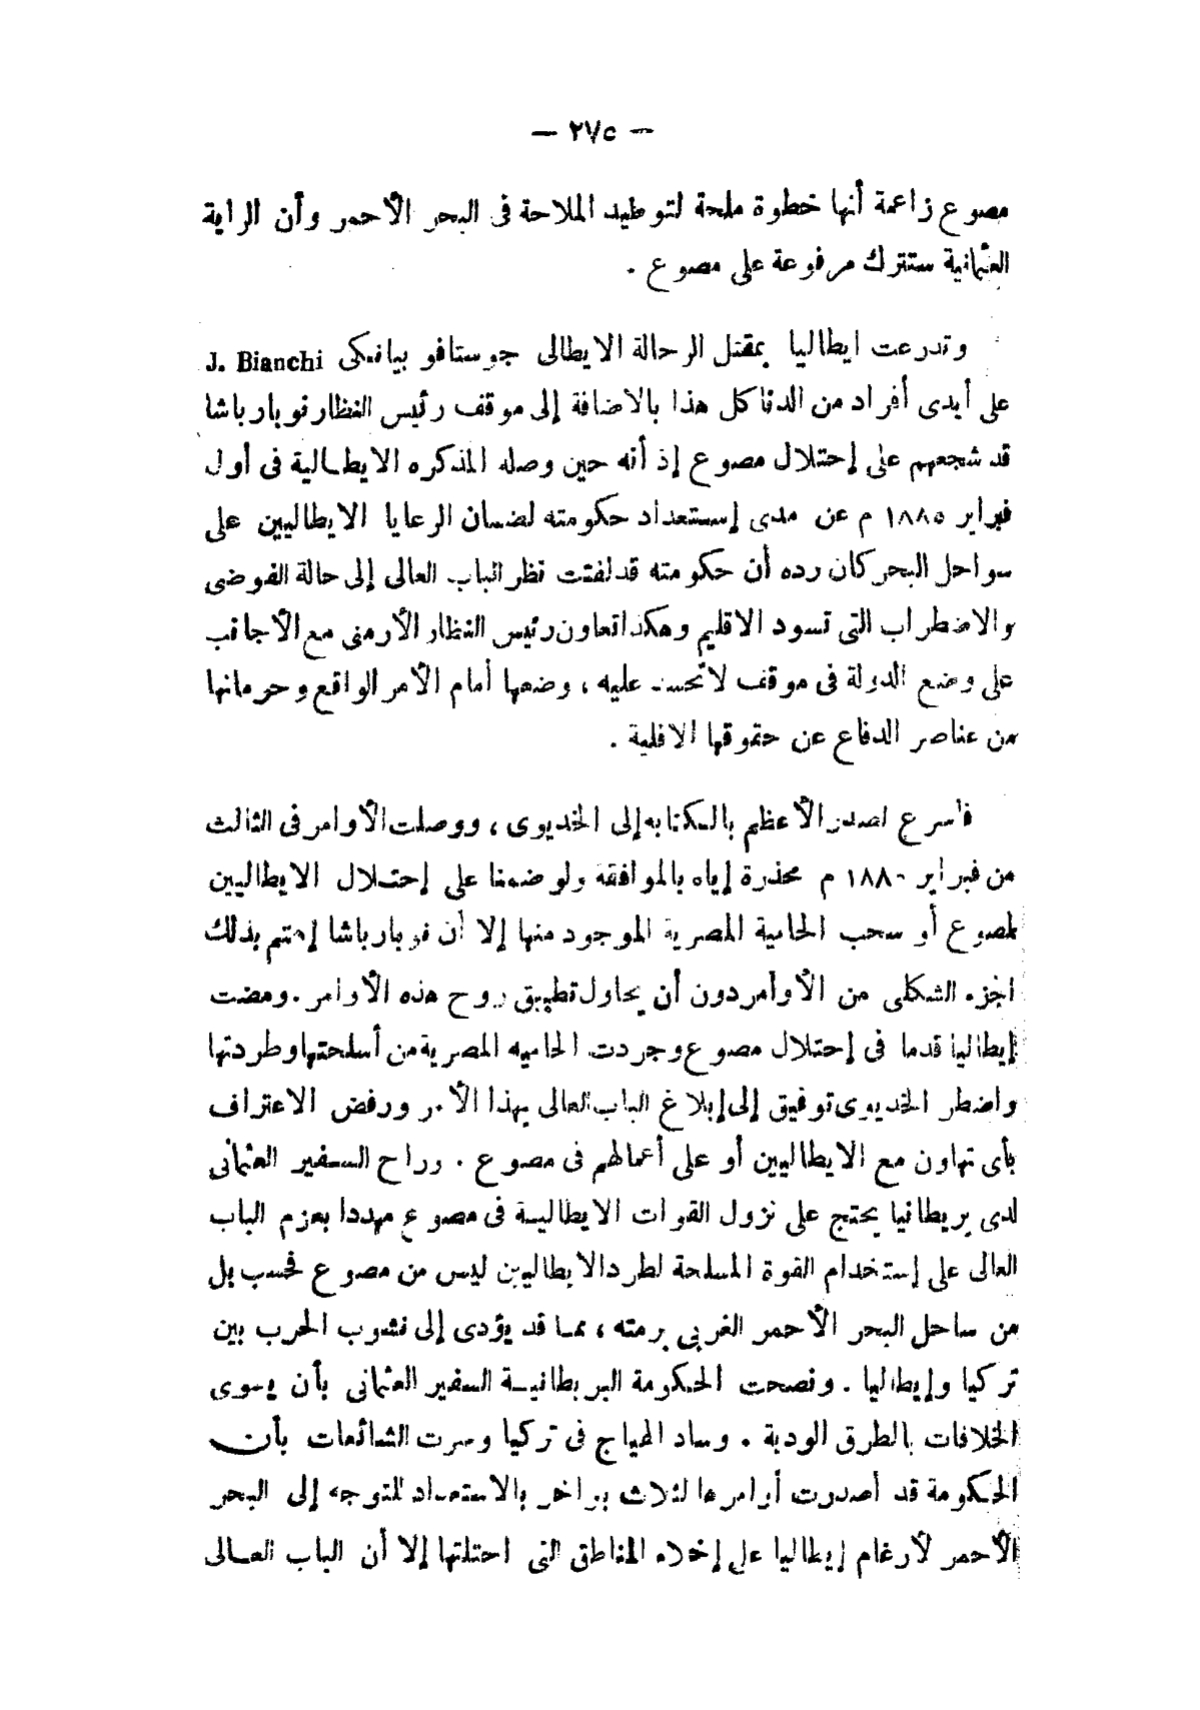 — ٢٧٥ —
مصوع زاعمة أنها خطوة ملحة لتوطيد الملاحة فى البحر الأحمر وأن الراية
العثمانية ستترك مرفوعة على مصوع .
وتذرعت ايطاليا بمقتل الرحالة الايطالى جوستافو بيانكى J. Bianchi
على أيدى أفراد من الدناكل هذا بالاضافة إلى موقف رئيس النظار نوبار باشا
قد شجعهم على إحتلال مصوع إذ أنه حين وصله المذكره الايطالية فى أول
فبراير ١٨٨٥ م عن مدى إستعداد حكومته لضمان الرعايا الايطاليين على
سواحل البحر كان رده أن حكومته قد لفتت نظر الباب العالى إلى حالة الفوضى
والاضطراب التى تسود الاقليم وهكذا تعاون رئيس النظار الأرمنى مع الأجانب
على وضع الدولة فى موقف لا تحسد عليه ، وضعها أمام الأمر الواقع وحرمانها
من عناصر الدفاع عن حقوقها الاقلية .
فأسرع الصدر الأعظم بالكتابه إلى الخديوى ، ووصلت الأوامر فى الثالث
من فبراير ١٨٨٠ م محذرة إياه بالموافقة ولو ضمنا على إحتلال الايطاليين
لمصوع أو سحب الحامية المصرية الموجود منها إلا أن نوبار باشا إهتم بذلك
الجزء الشكلى من الأوامر دون أن يحاول تطبيق روح هذه الأوامر . ومضت
إيطاليا قدما فى إحتلال مصوع وجردت الحاميه المصرية من أسلحتها وطردتها
واضطر الخديوى توفيق إلى إبلاغ الباب العالى بهذا الأمر ورفض الاعتراف
بأى تهاون مع الايطاليين أو على أعمالهم فى مصوع . وراح السفير العثمانى
لدى بريطانيا يحتج على نزول القوات الايطالية فى مصوع مهددا بعزم الباب
العالى على إستخدام القوة المسلحة لطرد الايطاليين ليس من مصوع فحسب بل
من ساحل البحر الأحمر الغربى برمته ، مما قد يؤدى إلى نشوب الحرب بين
تركيا وإيطاليا . ونصحت الحكومة البريطانية السفير العثمانى بأن يسوى
الخلافات بالطرق الودية . وساد الهياج فى تركيا وسرت الشائعات بأن
الحكومة قد أصدرت أوامرها لثلاث بواخر بالاستعداد للتوجه إلى البحر
الأحمر لأرغام إيطاليا على إخلاء المناطق التى احتلتها إلا أن الباب العالى